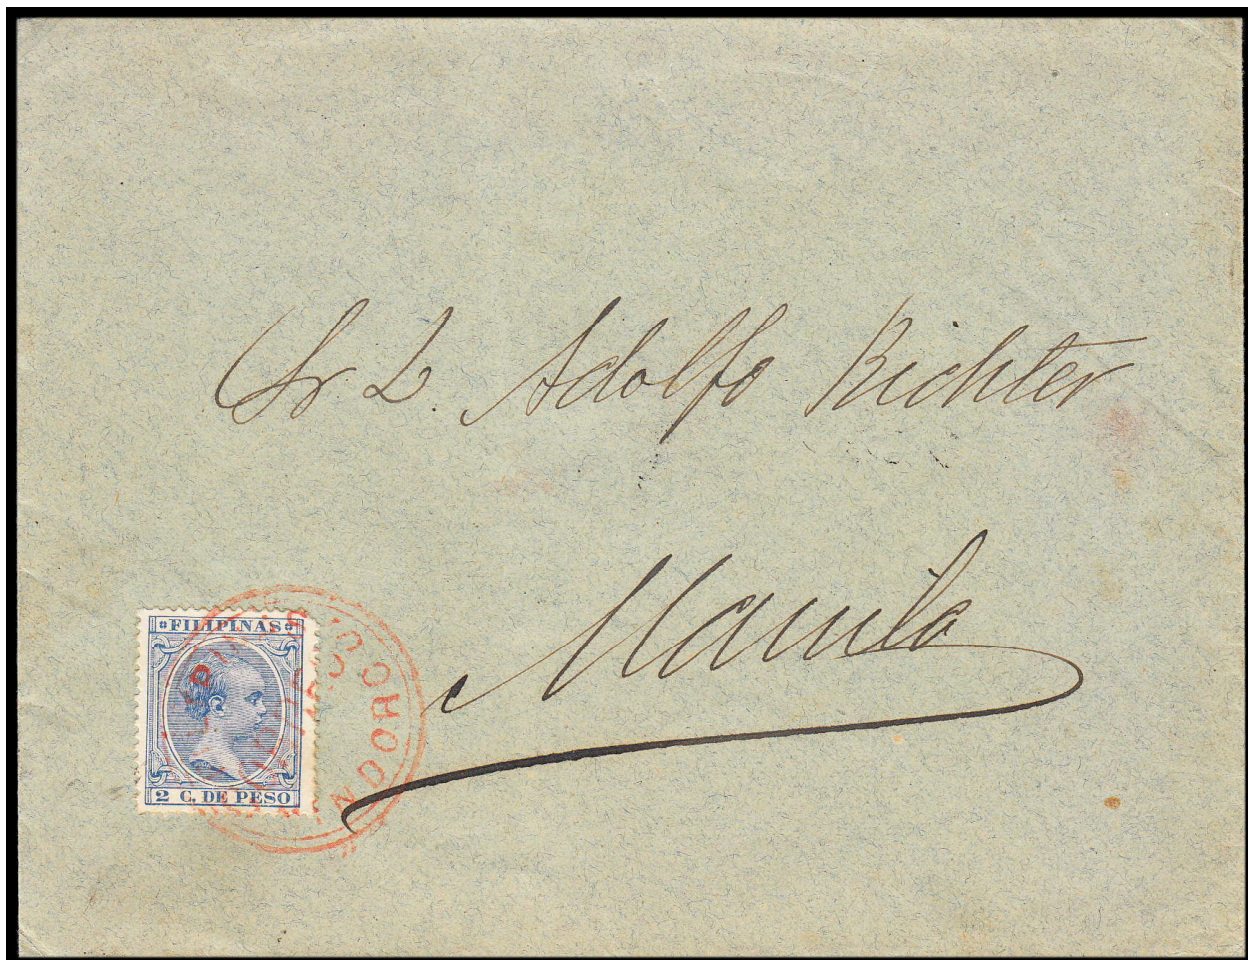 Sr D. Adolfo Richter
Manila
FILIPINAS
2 C. DE PESO